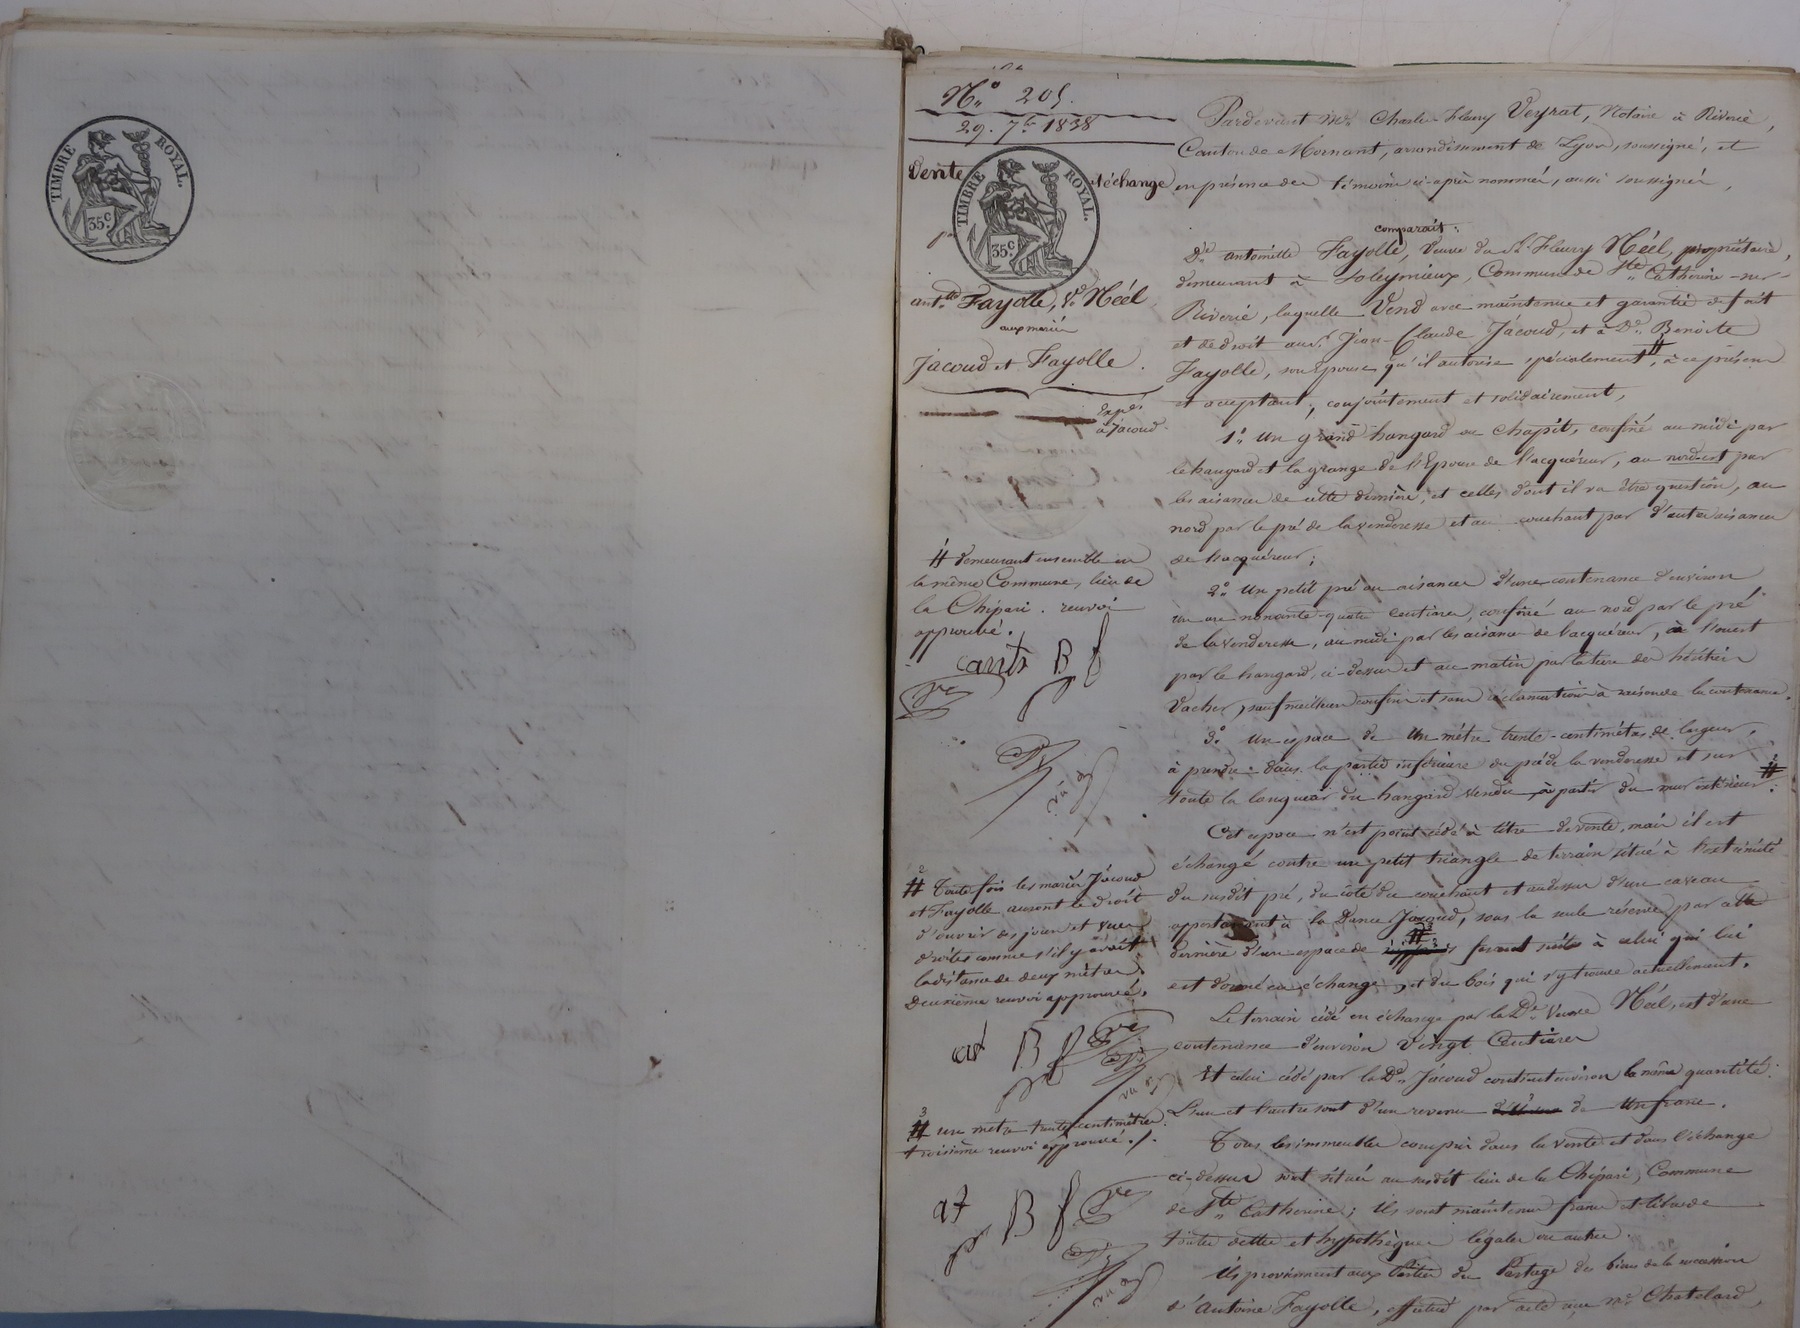 TIMBRE ROYAL.
35.c
N.o 205.
29. 7.bre 1838
Vente et échange
TIMBRE ROYAL.
35.c
ant.tte Fayolle, V.e Néél
aux mariés
Jacoud et Fayolle.
Expé.
à Jacoud
Pardevant M.e Charles Fleury Veyrat, Notaire à Riverie,
Canton de Mornant, arrondissement de Lyon, soussigné, et
en présence des témoins ci-après nommés, aussi soussignés,
comparait:
D.e antoinette Fayolle, Veuve du S.r Fleury Néél, propriétaire,
demeurant à Soleymieux, Commune de S.te Catherine-sur-
Riverie, laquelle Vend avec maintenue et garantie de fait
et de droit au S.r Jean-Claude Jacoud, et à D.e Benoite
Fayolle, son Epouse qu'il autorise spécialement, # à ce présens
et acceptant, conjointement et solidairement,
1.o Un grand hangard ou Chapit, confiné au midi par
le hangard et la grange de l'Epouse de l'acquéreur, au nord-est par
les aisances de cette dernière, et celles dont il va être question, au
nord par le pré de la venderesse et au couchant par d'autres aisances
de l'acquéreur;
2.o Un petit pré ou aisances d'une contenance d'environ
un are nonante-quatre centiares, confiné au nord par le pré
de la venderesse, au midi par les aisances de l'acquéreur, à l'ouest
par le hangard, ci-dessus et au matin par la terre des héritiers
Vacher, sauf meilleurs confins et sans réclamation à raison de la contenance.
3.o Un espace de Un mètre trente-centimètres de largeur,
à prendre dans la partie inférieure du pré de la venderesse et sur
toute la longueur du hangard vendu, à partir du mur extérieur. #
Cet espace n'est point cédé à titre de vente, mais il est
échangé contre un petit triangle de terrain situé à l'extrémité
du susdit pré, du côté du couchant et audessus d'un caveau
appartenant à la Dame Jacoud, sous la seule réserve par cette
dernière d'un espace de #3 faisant suite à celui qui lui
est donné en échange, et du bois qui s'y trouve actuellement.
Le terrain cédé en échange par la D.e Veuve Néél, est d'une
contenance d'environ Vingt Centiares
Et celui cédé par la D.e Jacoud contient environ la même quantité.
L'un et l'autre sont d'un revenu de Un franc.
Tous les immeubles compris dans la vente et dans l'échange
ci-dessus sont situés au susdit lieu de la Chipari, Commune
de S.te Catherine; ils sont maintenus francs et libres de
toutes dettes et hypothèques légales ou autres.
Ils proviennent aux Parties du Partage des biens de la succession
d'Antoine Fayolle, effectué par acte aux m.es Chatelard,
# demeurant ensemble en
la même Commune, lieu de
la Chipari. renvoi
approuvé.
B f
#2 Toute fois les mariés Jacoud
et Fayolle auront le droit
d'ouvrir des jours et vues
droites comme s'il y avait
la distance de deux mètres.
Deuxième renvoi approuvé.
B f
#3 un mètre trente centimètres.
troisième renvoi approuvé./.
af B f